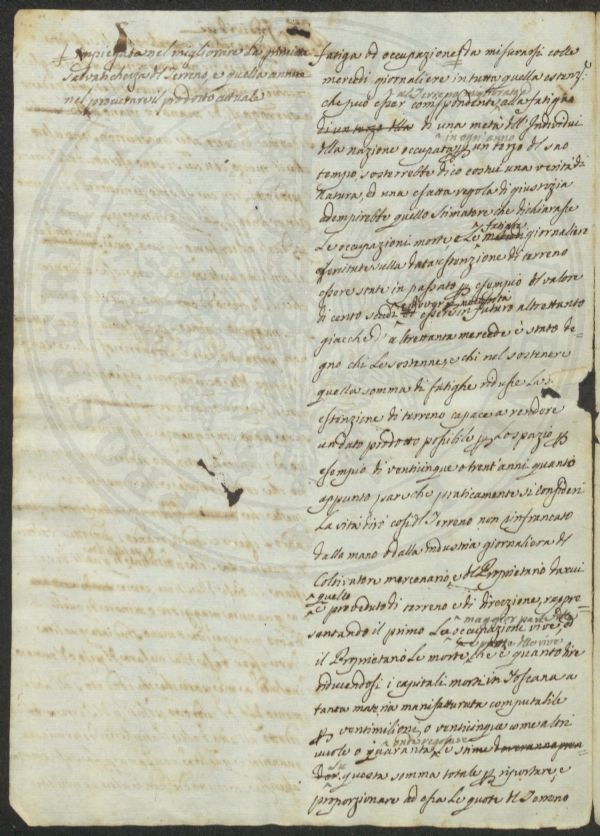 + Impiegata nel migliorare la primitiva
salvatichezza del Terreno, e quella annua
nel procurare il prodotto annuale
fatiga ed occupazione + da misurarsi colle
mercedi giornaliere in tutta quella estenz:
al Terreno migliorato
che può esser corrispondente alla fatiga
di un terzo della di una metà dell' Individui
in ogni anno
della nazione occupata un terzo del suo
tempo sosterrebbe dico costui una verità di
natura, ed una esatta regola di giustizia
adempirebbe quello stimatore che dichiarasse
fatighe
le occupazioni morte e le giornaliere
esercitate sulla data estenzione di terreno
essere state in passato p esempio del valore
di cento scudi ed essere in futuro altrettanto
giacchè d' altrettanta mercede è stato de=
gno chi le sostenne, e chi nel sostenere
quella somma di fatighe ridusse la
estenzione di terreno capace a rendere
un dato prodotto possibile p lo spazio p
esempio di venticinque o trent' anni quanto
appunto pare che praticamente si consideri
la vita dirò così del Terreno non rinfrancato
dalla mano o dalla industria giornaliera del
Coltivatore mercenario, e del Proprietario da cui
quello
è preceduto di terreno e di direzione, rappre
maggior parte delle
sentando il primo le occupazione vive, ed
il Proprietario le morte, che è quanto dire
riducendosi i capitali morti in Toscana a
tanta materia manifatturata computabile
p ventimilioni, o venticinque come altri
onde regolare
vuole o quaranta, e stime doveranno pren
der questa somma totale p riportare, e
proporzionare ad essa le quote del Terreno